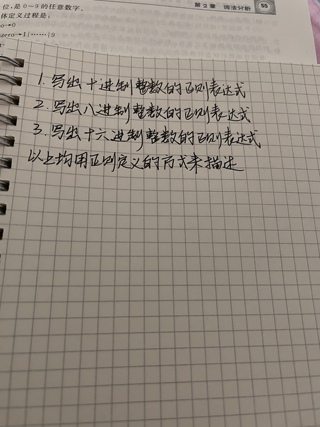 位,是0~9的任意数字。
第3章 词法分析 55
体定义过程是:
1. 写出十进制整数的正则表达式
2. 写出八进制整数的正则表达式
3. 写出十六进制整数的正则表达式
以上均用正则定义的方式来描述